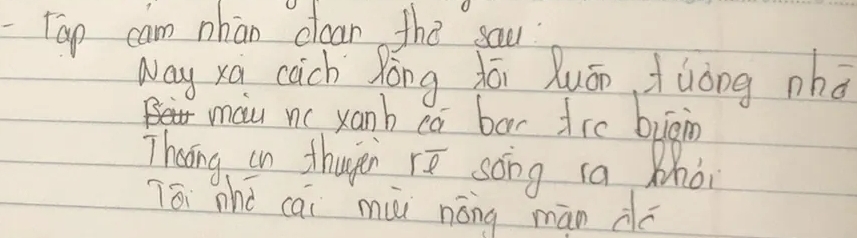 - Tập cảm nhận đoạn thơ sau:
Nay xa cách lòng tôi luôn tưởng nhớ
màu nc xanh cá bạc trc buồm
Thoáng cn thuyền rẽ sóng ra khơi
Tôi nhớ cái mùi nồng mặn đó